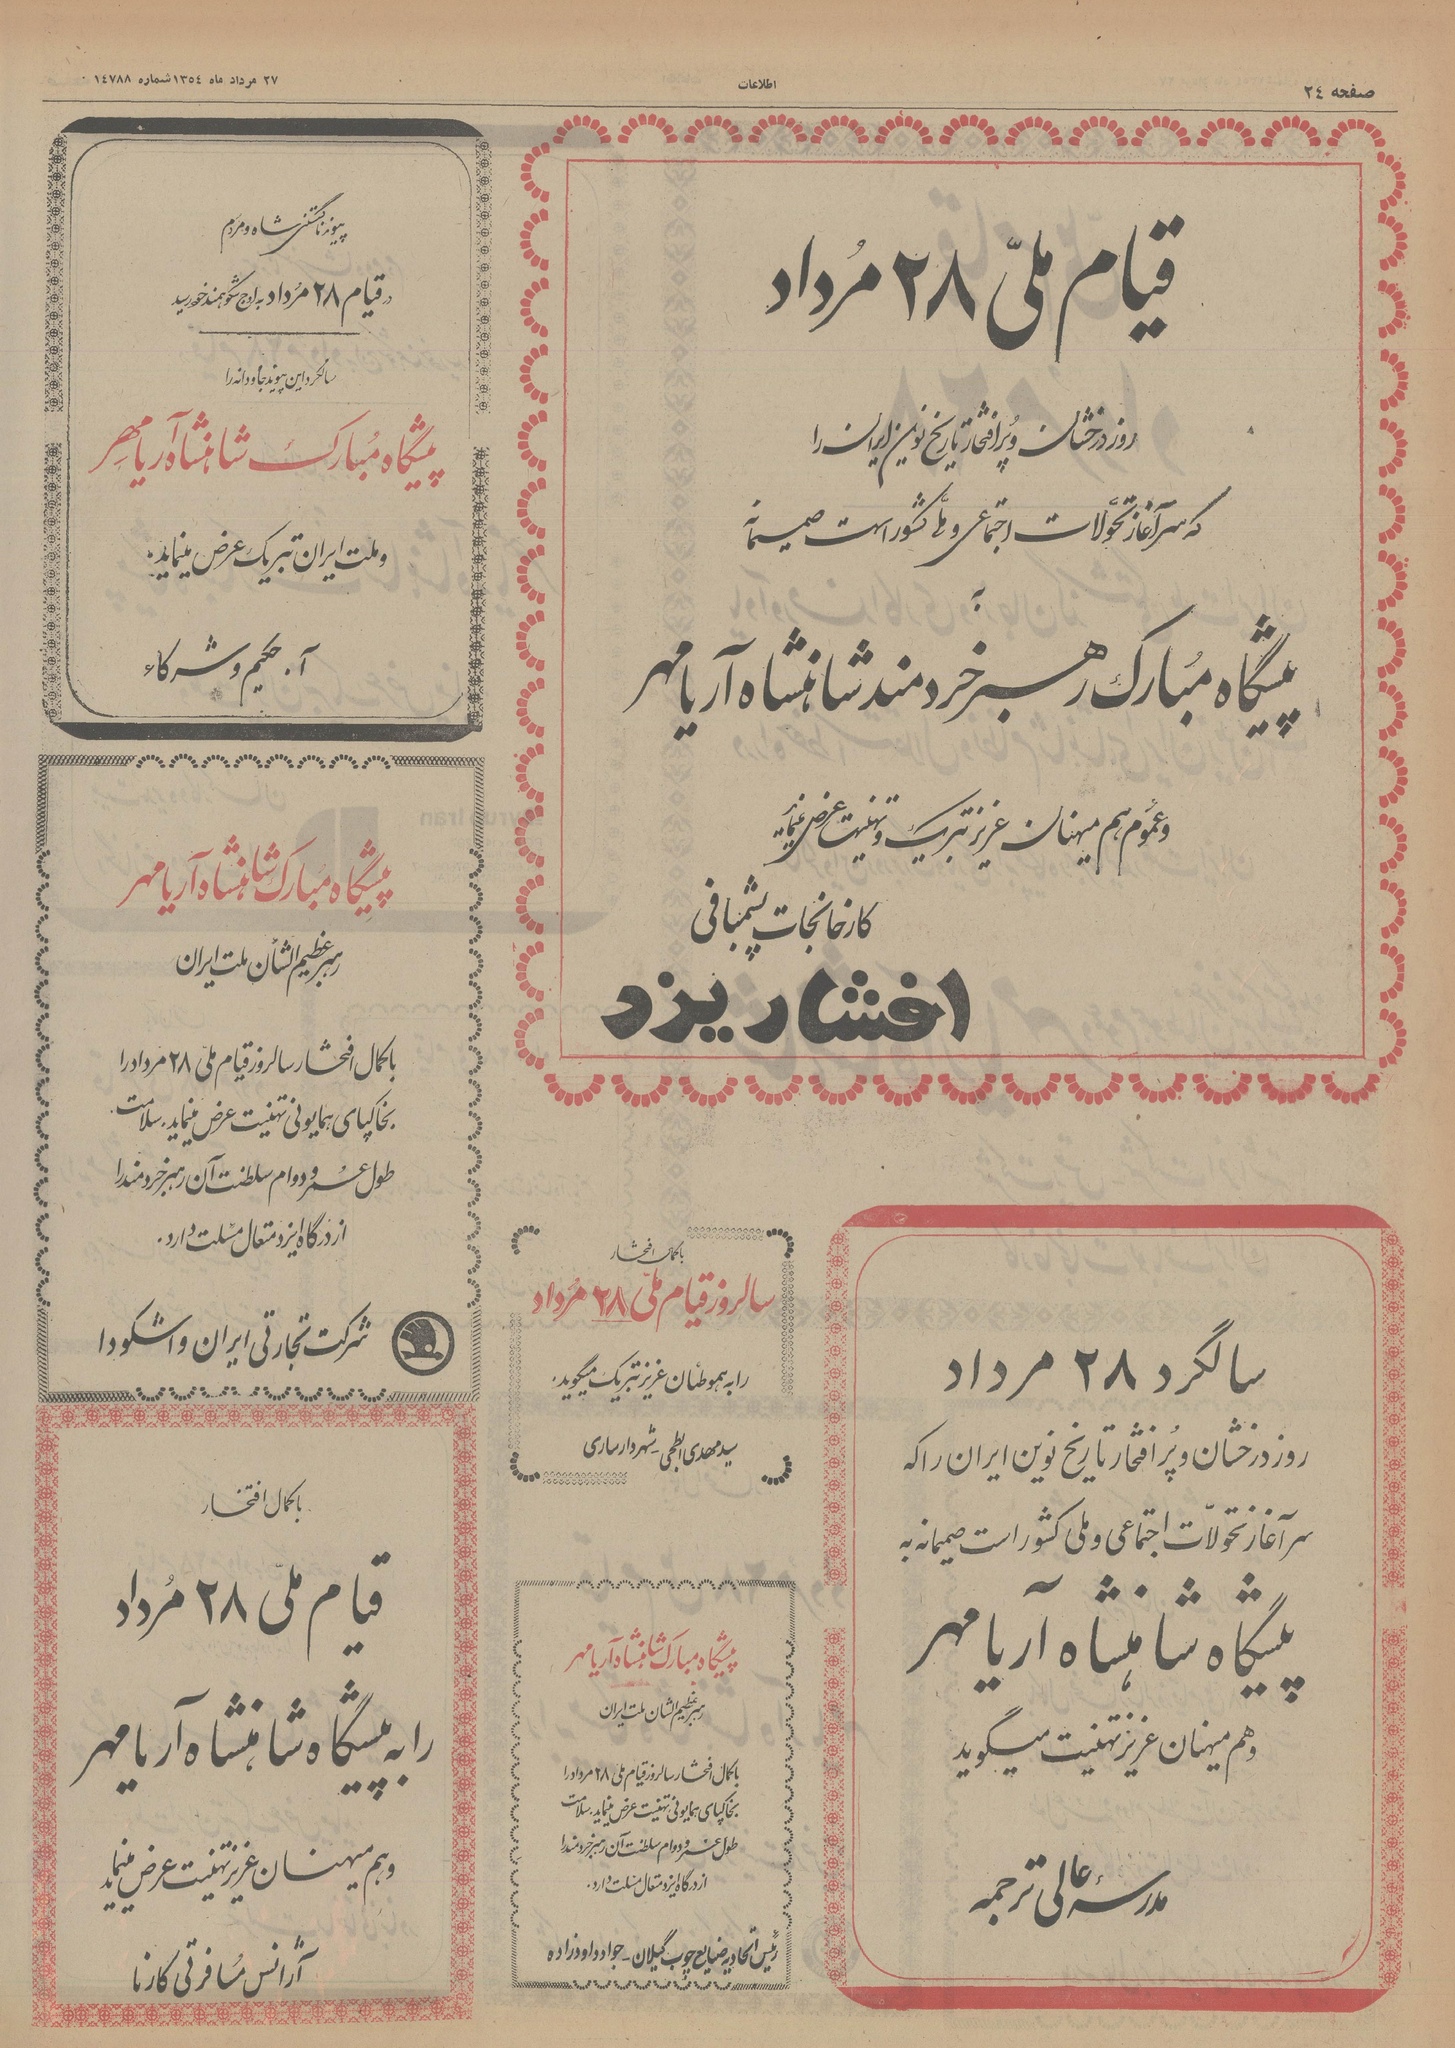 صفحه ۲۴
اطلاعات
۲۷ مرداد ماه ۱۳۵۴ شماره ۱۴۷۸۸
قیام ملّی ۲۸ مُرداد
روز درخشان و پُر افتخار تاریخ نوین ایران را
که سرآغاز تحوّلات اجتماعی و ملّی کشور است صمیمانه
به
پیشگاه مُبارک رهبر خردمند شاهنشاه آریامهر
و عُموم هم میهنان عزیز تبریک و تهنیت عرض مینماید
کارخانجات پشمبافی
افشار یزد
پیوند ناگسستنی شاه و مردم
در قیام ۲۸ مُرداد به اوج شکوهمند خود رسید
سالگرد این پیوند جاودانه را
پیشگاه مُبارک شاهنشاه آریامهر
و ملت ایران تبریک عرض مینماید.
آ. حکیم و شرکاء
پیشگاه مبارک شاهنشاه آریامهر
رهبر عظیم الشأن ملت ایران
با کمال افتخار سالروز قیام ملّی ۲۸ مرداد را
بخاکپای همایونی تهنیت عرض مینماید. سلامت
طول عمر و دوام سلطنت آن رهبر خردمند را
از درگاه ایزد متعال مسئلت دارد.
شرکت تجارتی ایران و اشکودا
با کمال افتخار
سالروز قیام ملّی ۲۸ مُرداد
را به هموطنان عزیز تبریک میگوید.
سید مهدی ابطحی - شهردار ساری
سالگرد ۲۸ مرداد
روز درخشان و پُر افتخار تاریخ نوین ایران را که
سرآغاز تحولاّت اجتماعی و ملی کشور است صمیمانه به
پیشگاه شاهنشاه آریامهر
و هم میهنان عزیز تهنیت میگوید
مدرسهٔ عالی ترجمه
با کمال افتخار
قیام ملّی ۲۸ مُرداد
را به پیشگاه شاهنشاه آریامهر
و هم میهنان عزیز تهنیت عرض مینماید
آژانس مسافرتی کارنا
پیشگاه مبارک شاهنشاه آریامهر
رهبر عظیم الشان ملت ایران
با کمال افتخار سالروز قیام ملّی ۲۸ مرداد را
بخاکپای همایونی تهنیت عرض مینماید. سلامت
طول عمر و دوام سلطنت آن رهبر خردمند را
از درگاه ایزد متعال مسئلت دارد.
رئیس اتحادیه صنایع چوب گیلان - جواد داودزاده